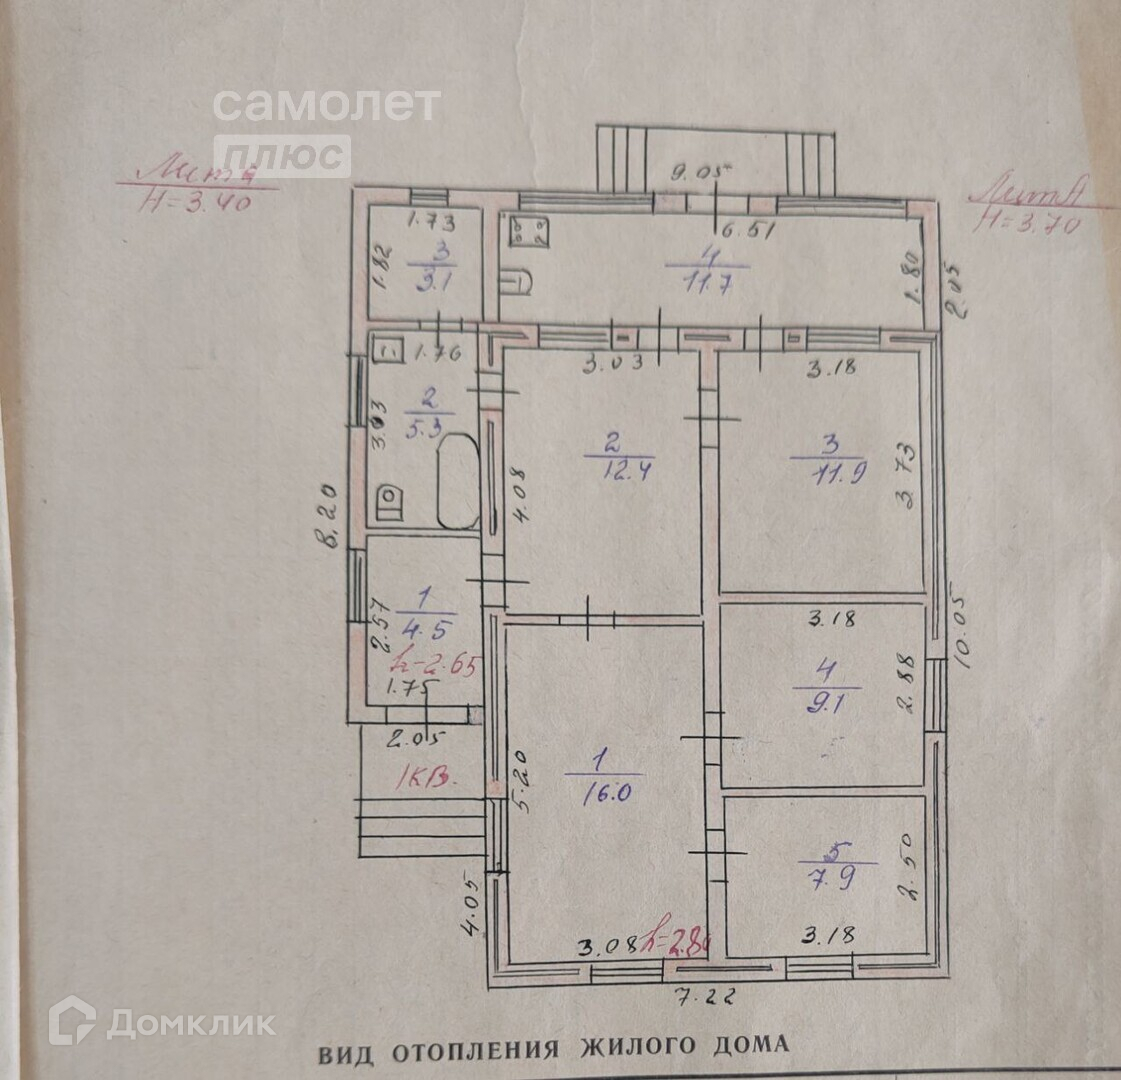 самолет
плюс
Лит а
Н=3.40
Лит А
Н=3.70
9.05
6.51
1.73
1.82
3
3.1
4
11.7
1.80
2.05
1.76
3.03
3.18
3.03
2
5.3
2
12.4
3
11.9
3.73
4.08
8.20
2.57
1
4.5
h-2.65
1.75
2.05
1КВ.
3.18
10.05
4
9.1
2.88
5.20
1
16.0
5
7.9
2.50
4.05
3.08
3.18
7.22
Домклик
ВИД ОТОПЛЕНИЯ ЖИЛОГО ДОМА